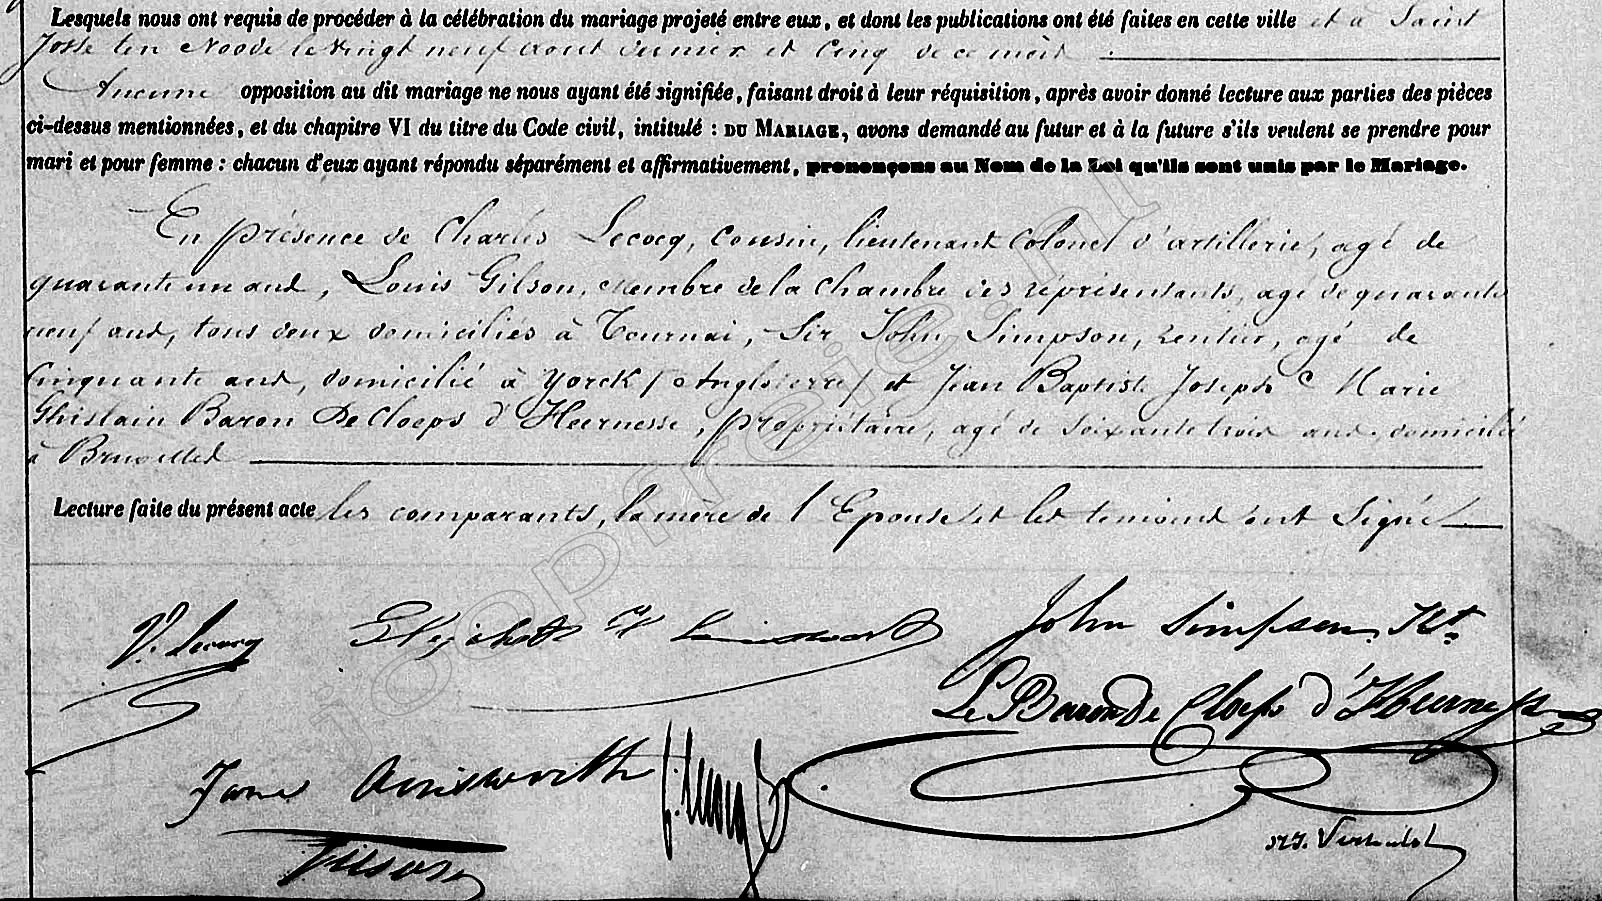 Lesquels nous ont requis de procéder à la célébration du mariage projeté entre eux, et dont les publications ont été faites en cette ville et à Saint
Josse ten Noode le vingt neuf aout dernier et cinq de ce mois
Aucune opposition au dit mariage ne nous ayant été signifiée, faisant droit à leur réquisition, après avoir donné lecture aux parties des pièces
ci-dessus mentionnées, et du chapitre VI du titre du Code civil, intitulé : DU MARIAGE, avons demandé au futur et à la future s'ils veulent se prendre pour
mari et pour femme : chacun d'eux ayant répondu séparément et affirmativement, prononçons au Nom de la Loi qu'ils sont unis par le Mariage.
En présence de Charles Lecocq, cousin, lieutenant Colonel d'artillerie, agé de
quarante un ans, Louis Gilson, membre de la Chambre des représentants, agé de quarante
neuf ans, tous deux domiciliés à Tournai, Sir John Simpson, rentier, agé de
Cinquante ans, domicilié à Yorck / Angleterre / et Jean Baptiste Joseph C Marie
Ghislain Baron De Cloeps d'Heernesse, propriétaire, agé de soixante trois ans, domicilié
à Bruxelles
Lecture faite du présent acte les comparants, la mère de l'Epouse et les temoins ont Signé
V. Lecocq
John Simpson Kt.
Le Baron De Cloeps d'Heernesse
Jane Ainsworth
Gilson
joopfreie.nl